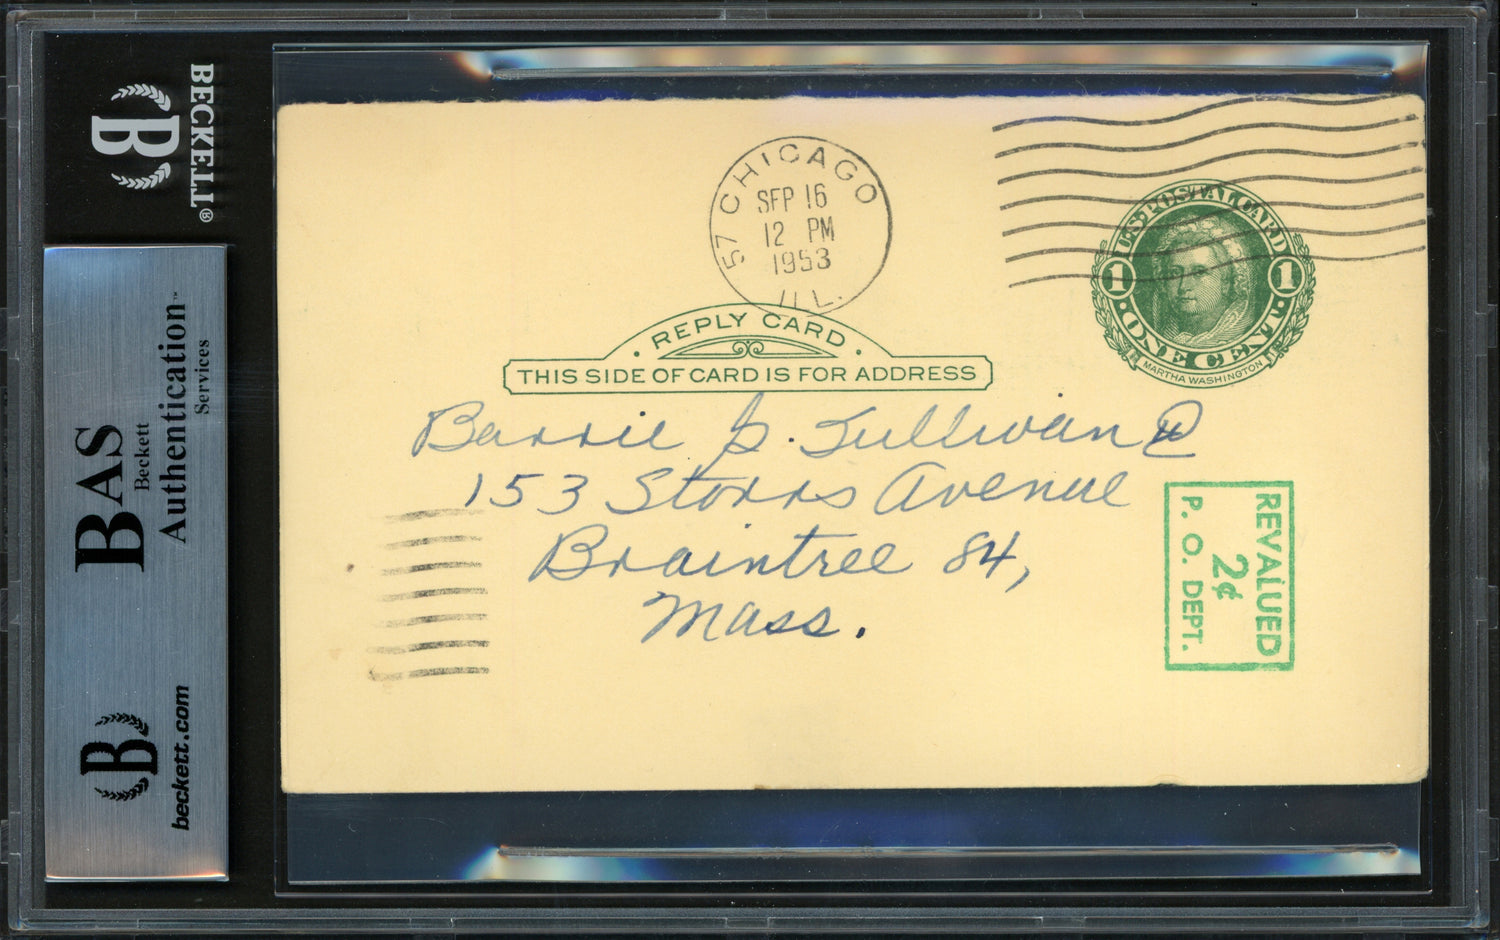 BECKETT®
B
BAS
Beckett
Authentication™
Services
B
beckett.com
57 CHICAGO
SEP 16
12 PM
1953
ILL.
U.S. POSTAL CARD
1 1
ONE CENT
MARTHA WASHINGTON
REPLY CARD
THIS SIDE OF CARD IS FOR ADDRESS
Barrie Sullivan
153 Storrs Avenue
Braintree 84,
Mass.
REVALUED
2¢
P. O. DEPT.